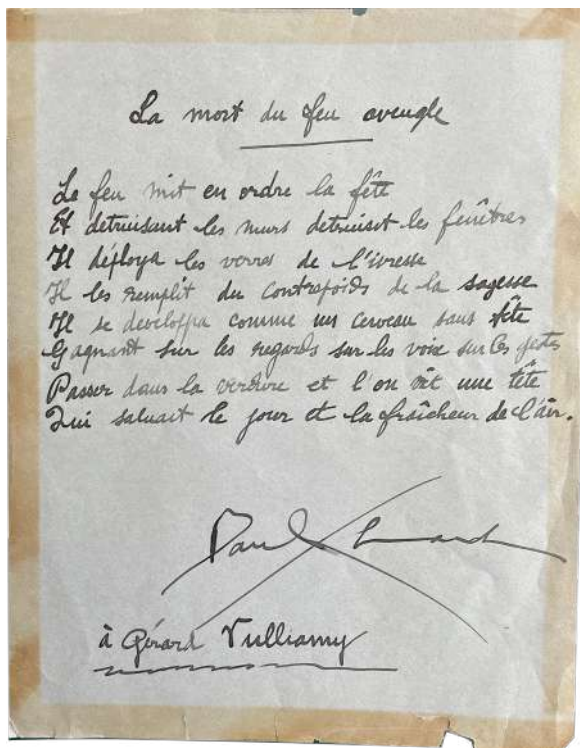 La mort du feu aveugle
Le feu mit en ordre la fête
Et detruisant les murs detruisit les fenêtres
Il déploya les verres de l'ivresse
Il les remplit du contrepoids de la sagesse
Il se developpa comme un cerveau sans tête
Gagnant sur les regards sur les voix sur les gestes
Passer dans la verdure et l'on vit une tête
Qui saluait le jour et la fraîcheur de l'air.
Paul Eluard
à Gérard Vulliamy